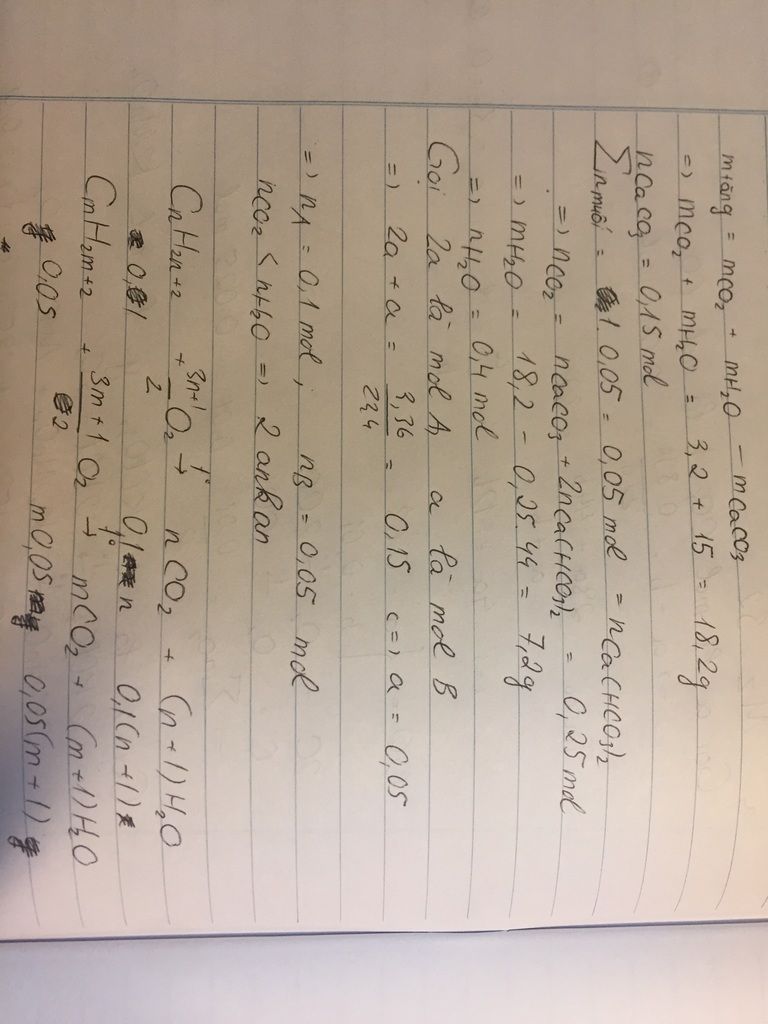 m tăng = mCO₂ + mH₂O − mCaCO₃
=> mCO₂ + mH₂O = 3,2 + 15 = 18,2g
nCaCO₃ = 0,15 mol
∑n muối = 1. 0,05 = 0,05 mol = nCa(HCO₃)₂
=> nCO₂ = nCaCO₃ + 2nCa(HCO₃)₂ = 0,25 mol
=> mH₂O = 18,2 − 0,25.44 = 7,2g
=> nH₂O = 0,4 mol
Gọi 2a là mol A, a là mol B
=> 2a + a = 3,36/22,4 = 0,15 <=> a = 0,05
=> nA = 0,1 mol ; nB = 0,05 mol
nCO₂ < nH₂O => 2 ankan
CnH₂n+2 + (3n+1)/2 O₂ →t° nCO₂ + (n+1)H₂O
0,1 0,1n 0,1(n+1)
CmH₂m+2 + (3m+1)/2 O₂ →t° mCO₂ + (m+1)H₂O
0,05 m0,05 0,05(m+1)